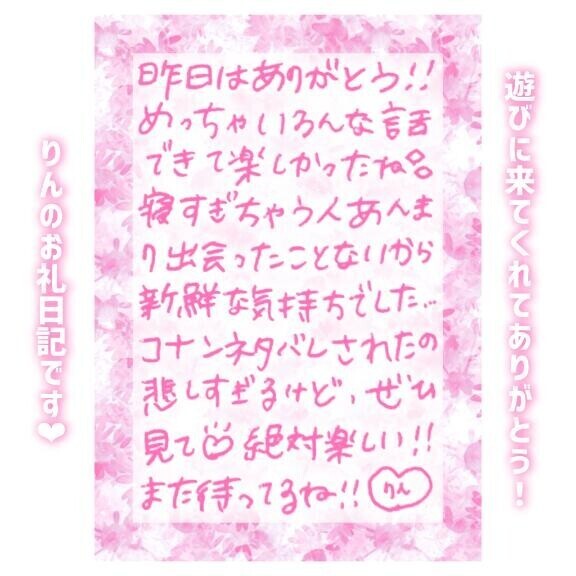 遊びに来てくれてありがとう!
昨日はありがとう!!
めっちゃいろんな話
できて楽しかったね
寝すぎちゃう人あんま
り出会ったことないから
新鮮な気持ちでした...
コナンネタバレされたの
悲しすぎるけど、ぜひ
見て 絶対楽しい!!
また待ってるね!!
りん
りんのお礼日記です❤